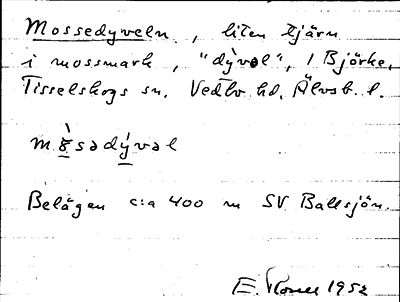 Mossedyveln, liten tjärn
i mossmark, "dývəl", i Björke,
Tisselskogs sn. Vedbo hd. Älvsb. l.
m ò̤ s ə d ý̱ v ə l
Belägen c:a 400 m SV Ballsjön.
E. 1952